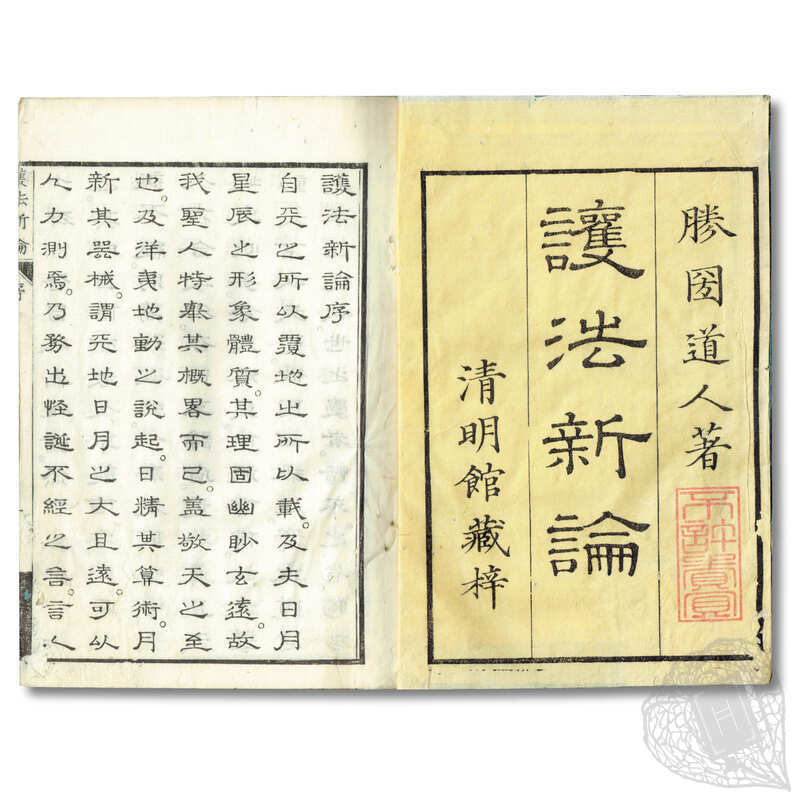 勝圀道人著
護法新論
清明館藏梓
不許賣買
護法新論序
自天之所以覆地之所以載。及夫日月
星辰之形象體質。其理固幽眇玄遠。故
我聖人特舉其概畧而已。蓋敬天之至
也。及洋夷地動之說起。日精其算術。月
新其器械。謂天地日月之大且遠。可以
人力測焉。乃務出怪誕不經之言。言人
護法新論 序
H